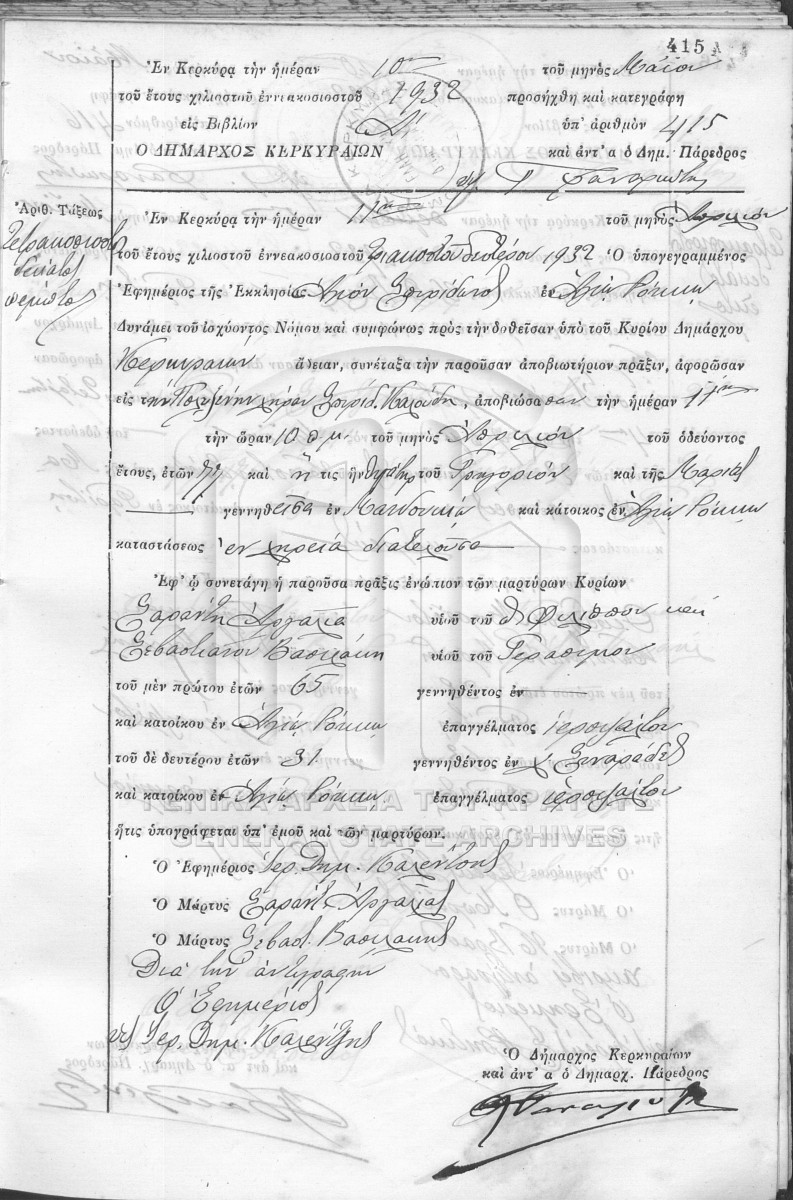 415 A
Ἐν Κερκύρᾳ τὴν ἡμέραν 10ην τοῦ μηνὸς Μαΐου
τοῦ ἔτους χιλιοστοῦ ἐννεακοσιοστοῦ 1932 προσήχθη καὶ κατεγράφη
εἰς Βιβλίον Α' ὑπ' ἀριθμὸν 415
Ο ΔΗΜΑΡΧΟΣ ΚΕΡΚΥΡΑΙΩΝ καὶ ἀντ' α ὁ Δημ. Πάρεδρος
Ἀριθ. Τάξεως
Τετρακοσιοστὸς
δέκατος
πέμπτος
Ἐν Κερκύρᾳ τὴν ἡμέραν 11ην τοῦ μηνὸς Ἀπριλίου
τοῦ ἔτους χιλιοστοῦ ἐννεακοσιοστοῦ τριακοστοῦ δευτέρου 1932 Ὁ ὑπογεγραμμένος
Ἐφημέριος τῆς Ἐκκλησίας Ἁγίου Σπυρίδωνος ἐν Ἁγίῳ Ρόκκῳ
Δυνάμει τοῦ ἰσχύοντος Νόμου καὶ συμφώνως πρὸς τὴν δοθεῖσαν ὑπὸ τοῦ Κυρίου Δημάρχου
Κερκυραίων ἄδειαν, συνέταξα τὴν παροῦσαν ἀποβιωτήριον πρᾶξιν, ἀφορῶσαν
εἰς τὴν Πολυξένην χήραν Σπυρίδ. Καλούδη, ἀποβιώσασαν τὴν ἡμέραν 11ην
τὴν ὥραν 10 π μ. τοῦ μηνὸς Ἀπριλίου τοῦ ὁδεύοντος
ἔτους, ἐτῶν 77 καὶ ἥτις ἦν θυγάτηρ τοῦ Γρηγορίου καὶ τῆς Μαρίας
γεννηθεῖσα ἐν Μανδουκίῳ καὶ κάτοικος ἐν Ἁγίῳ Ρόκκῳ
καταστάσεως ἐν χηρείᾳ διατελοῦσα
Ἐφ' ᾧ συνετάγη ἡ παροῦσα πρᾶξις ἐνώπιον τῶν μαρτύρων Κυρίων
Σαράντη Ἀργαλιᾶ υἱοῦ τοῦ Φιλίππου καὶ
Σεβαστιανοῦ Βασιλάκη υἱοῦ τοῦ Γερασίμου
τοῦ μὲν πρώτου ἐτῶν 65 γεννηθέντος ἐν
καὶ κατοίκου ἐν Ἁγίῳ Ρόκκῳ ἐπαγγέλματος ἱεροψάλτου
τοῦ δὲ δευτέρου ἐτῶν 31 γεννηθέντος ἐν Σιναράδες
καὶ κατοίκου ἐν Ἁγίῳ Ρόκκῳ ἐπαγγέλματος ἱεροψάλτου
ΓΕΝΙΚΑ ΑΡΧΕΙΑ ΤΟΥ ΚΡΑΤΟΥΣ
ἥτις ὑπογράφεται ὑπ' ἐμοῦ καὶ τῶν μαρτύρων.
GENERAL STATE ARCHIVES
Ὁ Ἐφημέριος Ἱερ. Δημ. Καλέντζης
Ὁ Μάρτυς Σαράντης Ἀργαλιᾶς
Ὁ Μάρτυς Σεβαστ. Βασιλάκης
Διὰ τὴν ἀντιγραφὴν
Ὁ Ἐφημέριος
Ἱερ. Δημ. Καλέντζης
Ὁ Δήμαρχος Κερκυραίων
καὶ ἀντ' α ὁ Δημαρχ. Πάρεδρος